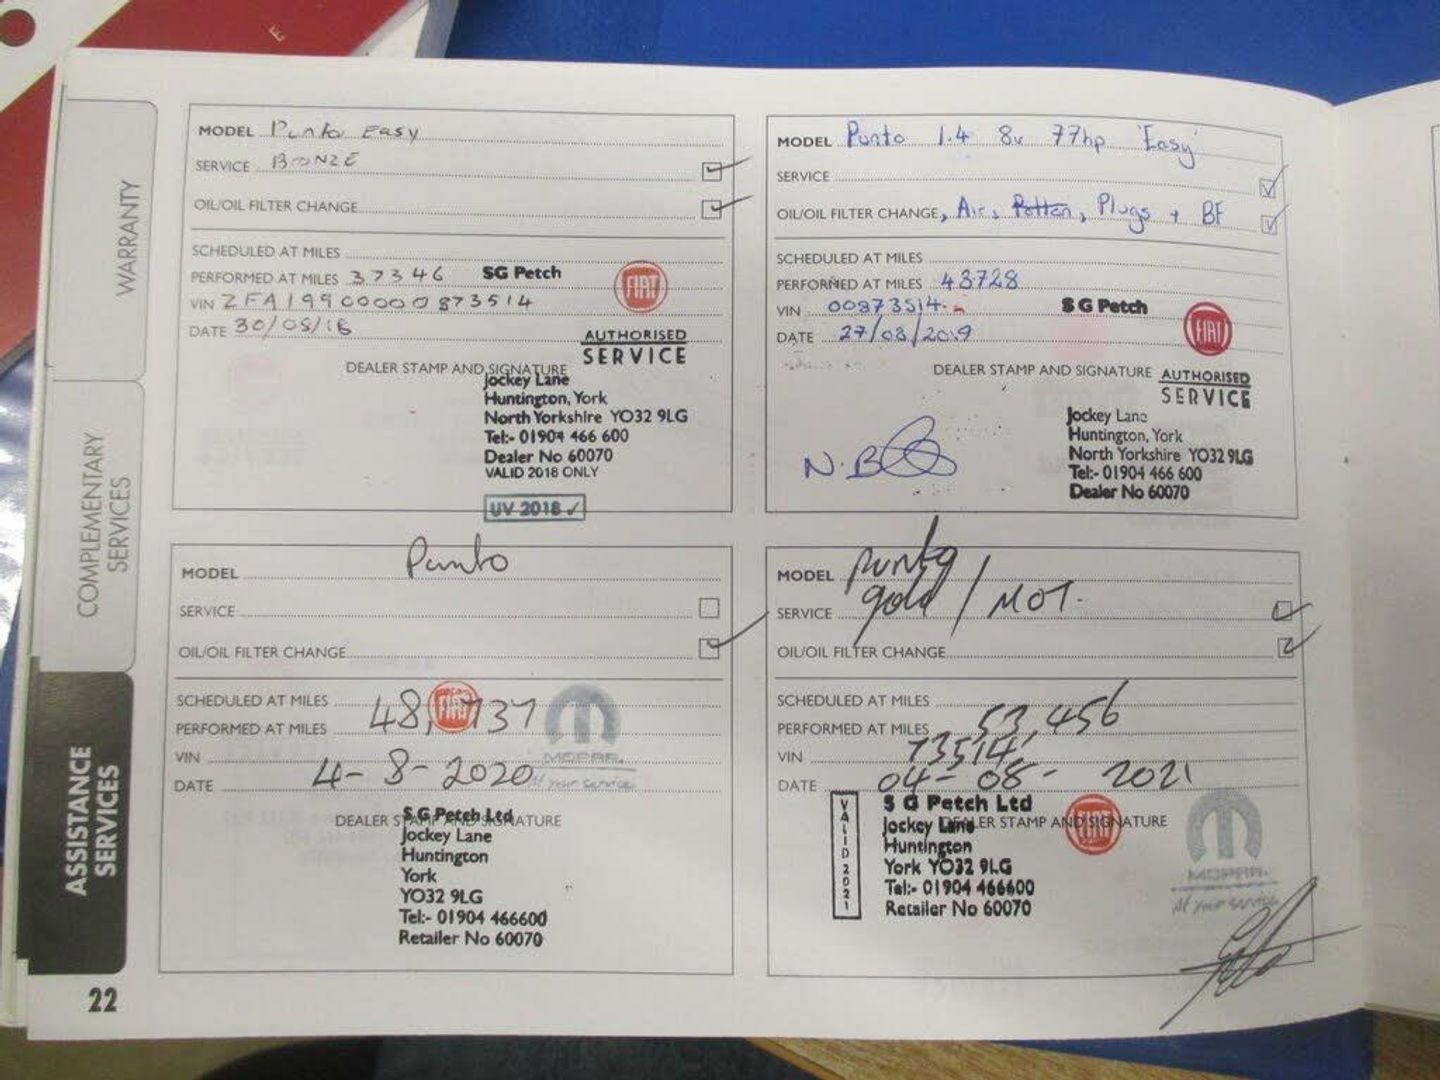 WARRANTY
COMPLEMENTARY
SERVICES
ASSISTANCE
SERVICES
22
MODEL Punto Easy
SERVICE BRONZE
OIL/OIL FILTER CHANGE
SCHEDULED AT MILES
PERFORMED AT MILES 37346
VIN ZFA19900000873514
DATE 30/05/18
SG Petch
FIAT
AUTHORISED
SERVICE
DEALER STAMP AND SIGNATURE
Jockey Lane
Huntington, York
North Yorkshire YO32 9LG
Tel:- 01904 466 600
Dealer No 60070
VALID 2018 ONLY
UV 2018 ✓
MODEL Punto 1.4 8v 77hp 'Easy'
SERVICE
OIL/OIL FILTER CHANGE, Air, Plugs + BF
SCHEDULED AT MILES
PERFORMED AT MILES 43728
VIN 00873514
DATE 27/08/2019
SG Petch
FIAT
AUTHORISED
SERVICE
DEALER STAMP AND SIGNATURE
Jockey Lane
Huntington, York
North Yorkshire YO32 9LG
Tel:- 01904 466 600
Dealer No 60070
N.B
MODEL Punto
SERVICE
OIL/OIL FILTER CHANGE
SCHEDULED AT MILES
PERFORMED AT MILES 48,737
VIN
DATE 4-8-2020
FIAT
MOPAR
At your service
DEALER STAMP AND SIGNATURE
S G Petch Ltd
Jockey Lane
Huntington
York
YO32 9LG
Tel:- 01904 466600
Retailer No 60070
MODEL punto
SERVICE gold / MOT.
OIL/OIL FILTER CHANGE
SCHEDULED AT MILES
PERFORMED AT MILES 53,456
VIN 73514
DATE 04-08-2021
VALID 2021
S G Petch Ltd
DEALER STAMP AND SIGNATURE
Jockey Lane
Huntington
York YO32 9LG
Tel:- 01904 466600
Retailer No 60070
FIAT
MOPAR
At your service